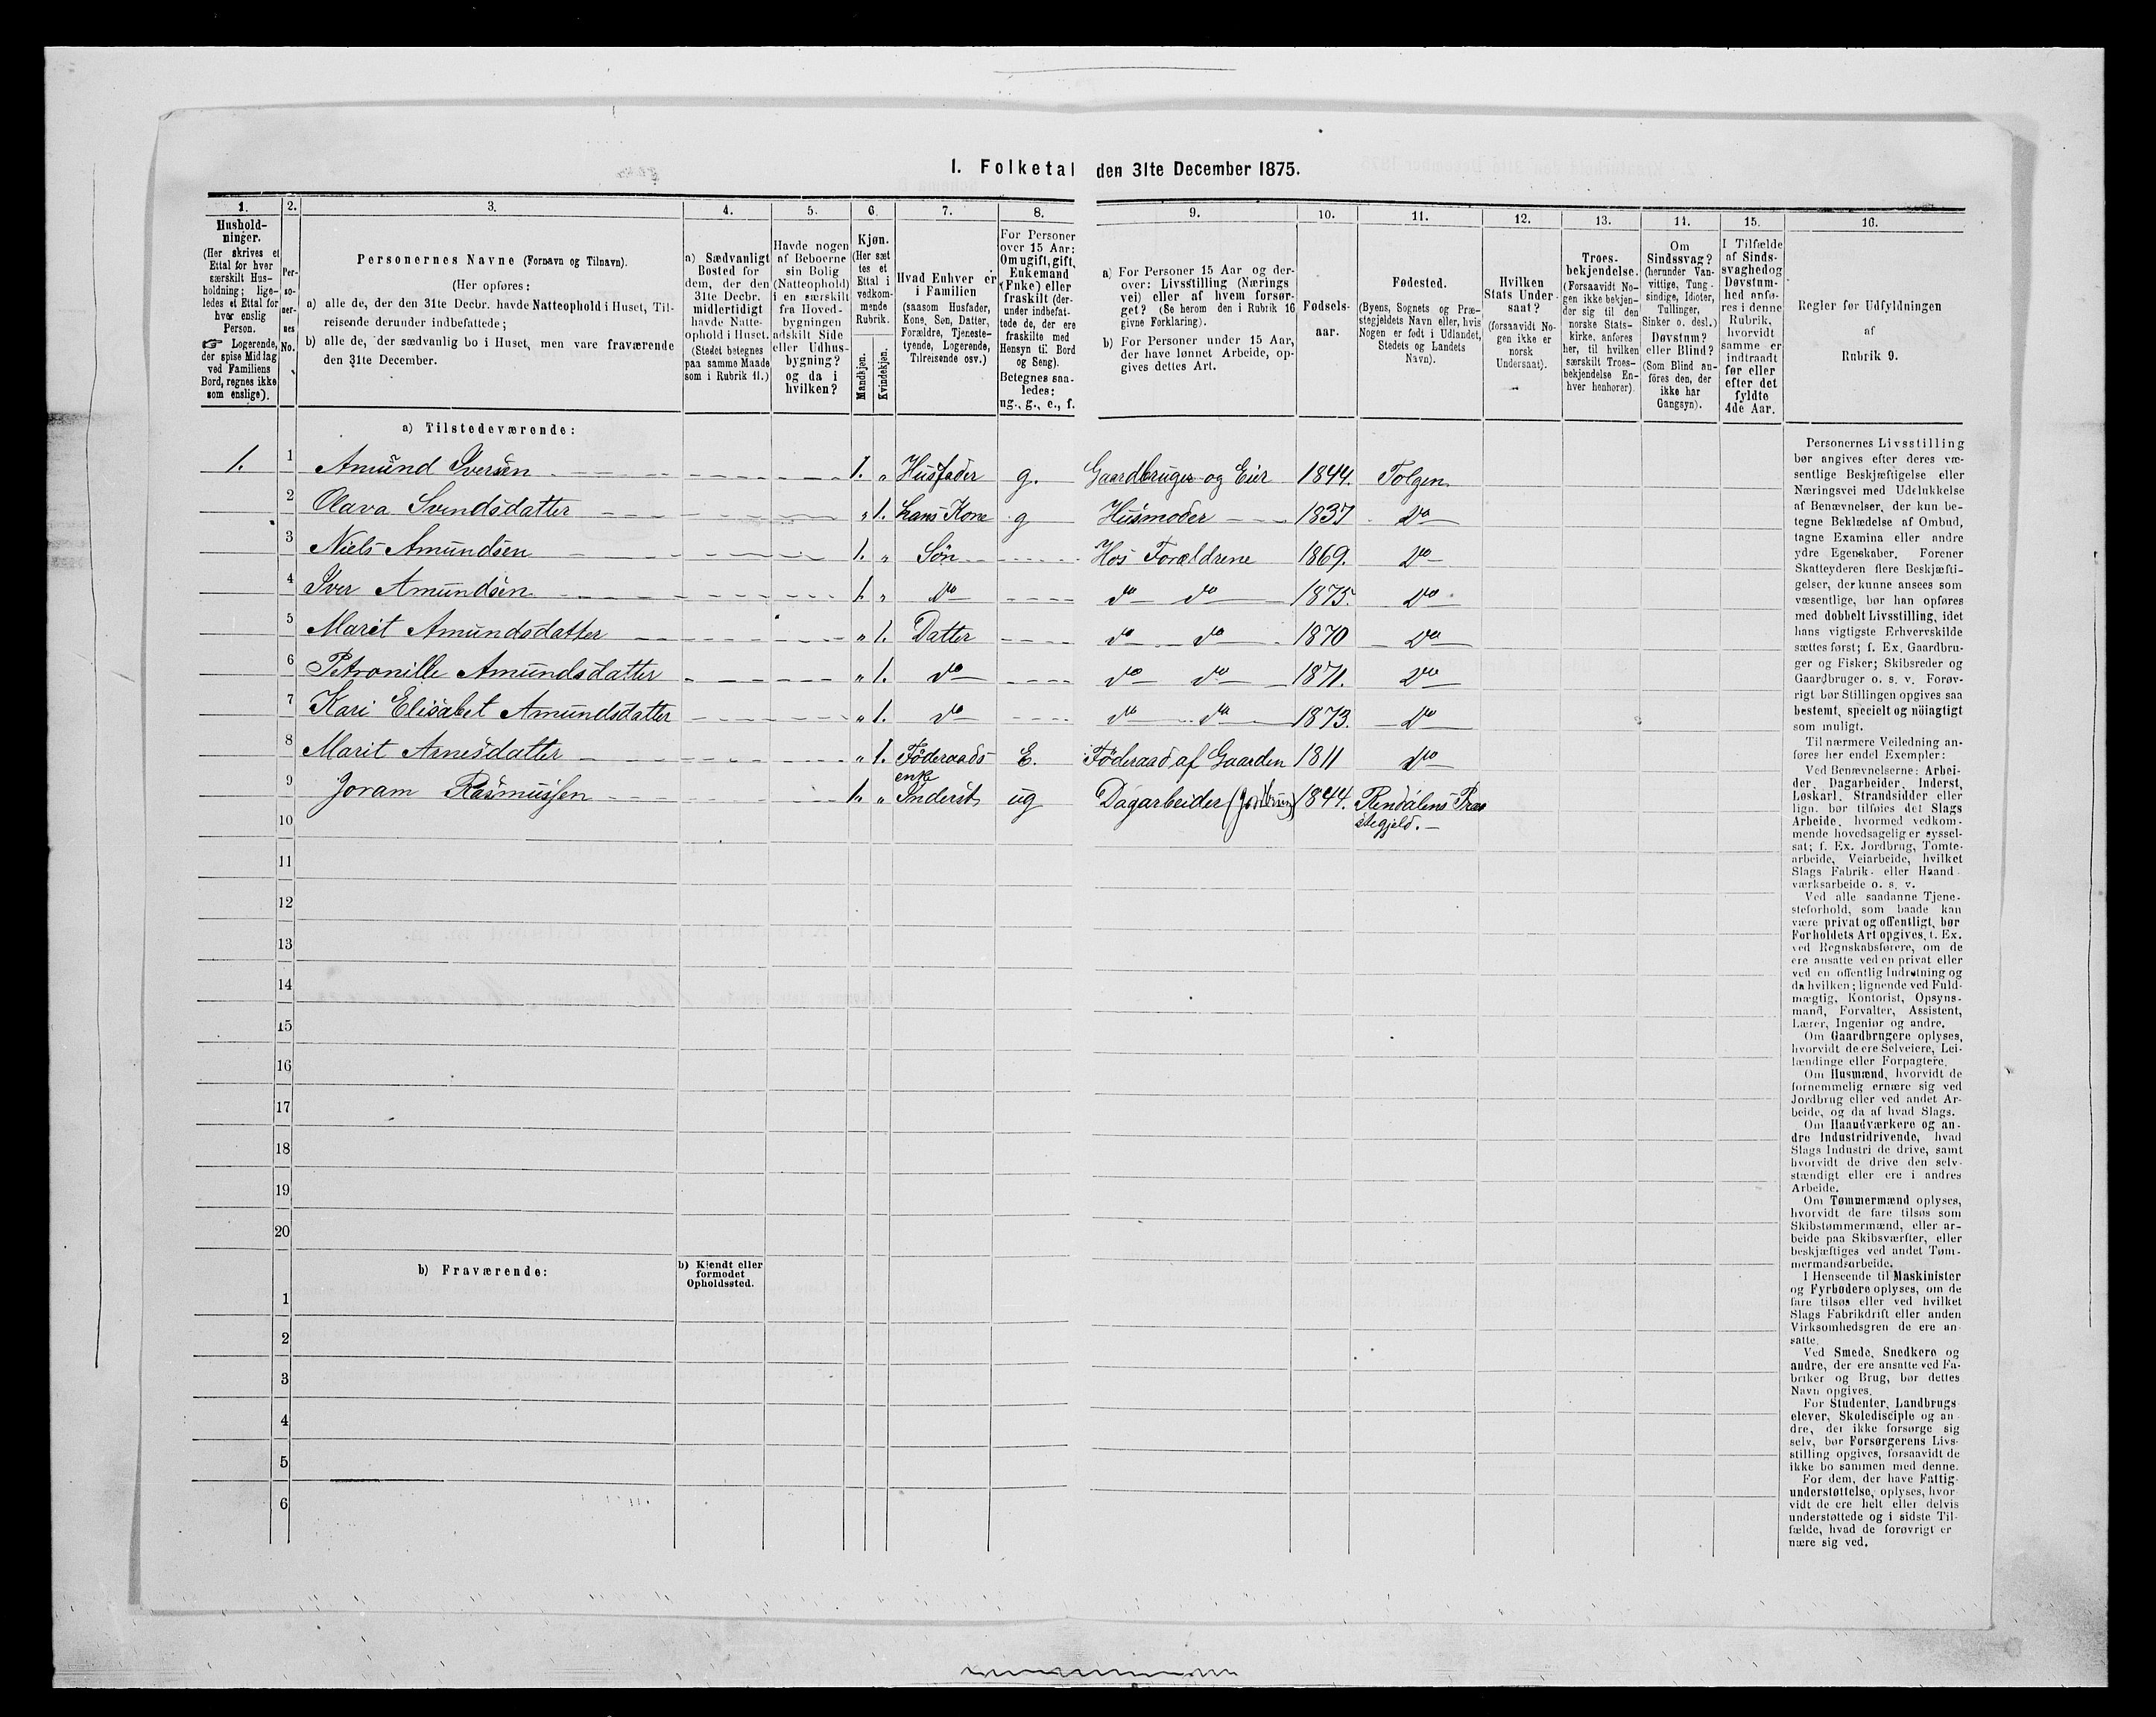 I. Folketal den 31te December 1875.
1.
Hushold-
ninger.
(Her skrives et
Ettal for hver
særskilt Hus-
holdning; lige-
ledes et Ettal for
hver enslig
Person.
☞ Logerende,
der spise Middag
ved Familiens
Bord, regnes ikke
som enslige).
2.
Per-
so-
ner-
nes
No.
3.
Personernes Navne (Fornavn og Tilnavn).
(Her opføres:
a) alle de, der den 31te Decbr. havde Natteophold i Huset, Til-
reisende derunder indbefattede;
b) alle de, der sædvanlig bo i Huset, men vare fraværende
den 31te December.
4.
a) Sædvanligt
Bosted for
dem, der den
31te Decbr.
midlertidigt
havde Natte-
ophold i Huset.
(Stedet betegnes
paa samme Maade
som i Rubrik 11.)
5.
Havde nogen
af Beboerne
sin Bolig
(Natteophold)
i en særskilt
fra Hoved-
bygningen
adskilt Side
eller Udhus-
bygning?
og da i
hvilken?
6.
Kjøn.
(Her sæt
tes et
Ettal i
vedkom-
mende
Rubrik.
Mandkjøn.
Kvindekjøn.
7.
Hvad Enhver er
i Familien
(saasom Husfader,
Kone, Søn, Datter,
Forældre, Tjeneste-
tyende, Logerende,
Tilreisende osv.)
8.
For Personer
over 15 Aar:
Om ugift, gift,
Enkemand
(Enke) eller
fraskilt (der-
under indbefat-
tede de, der ere
fraskilte med
Hensyn til Bord
og Seng).
Betegnes saa-
ledes:
ug., g., e., f.
9.
a) For Personer 15 Aar og der-
over: Livsstilling (Nærings
vei) eller af hvem forsør-
get? (Se herom den i Rubrik 16
givne Forklaring).
b) For Personer under 15 Aar,
der have lønnet Arbeide, op-
gives dettes Art.
10.
Fødsels-
aar.
11.
Fødested.
(Byens, Sognets og Præ-
stegjeldets Navn eller, hvis
Nogen er født i Udlandet,
Stedets og Landets
Navn).
12.
Hvilken
Stats Under-
saat?
(forsaavidt No-
gen ikke er
norsk
Undersaat).
13.
Troes-
bekjendelse.
(Forsaavidt No-
gen ikke bekjen-
der sig til den
norske Stats-
kirke, anføres
her, til hvilken
særskilt Troes-
bekjendelse En-
hver henhører).
14.
Om
Sindssvag?
(herunder Van-
vittige, Tung-
sindige, Idioter,
Tullinger,
Sinker o. desl.)
Døvstum?
eller Blind?
(Som Blind an-
føres den, der
ikke har
Gangsyn).
15.
I Tilfælde
af Sinds-
svaghed og
Døvstum-
hed anfø-
res i denne
Rubrik,
hvorvidt
samme er
indtraadt
før eller
efter det
fyldte
4de Aar.
16.
Regler for Udfyldningen
af
Rubrik 9.
a) Tilstedeværende:
1. 1 Amund Iversen 1. „ Husfader g. Gaardbruger og Eier 1844. Tolgen
2 Olava Svendsdatter „ 1. hans Kone g Husmoder 1837 do
3 Niels Amundsen 1. „ Søn Hos Forældrene 1869. do
4 Iver Amundsen 1. „ do do do 1875. do
5 Marit Amundsdatter „ 1. Datter do do 1870 do
6 Petronille Amundsdatter „ 1. do do do 1871. do
7 Kari Elisabet Amundsdatter „ 1. do do do 1873. do
8 Marit Arnesdatter „ 1. Föderaads enke E. Föderaad af Gaarden 1811 do
9 Joram Rasmussen 1. „ Inderst ug Dagarbeider (Jordbrug) 1844. Rendalens Præ
stegjeld.
10
11
12
13
14
15
16
17
18
19
20
b) Fraværende:
b) Kjendt eller
formodet
Opholdssted.
1
2
3
4
5
6
Personernes Livsstilling
bør angives efter deres væ-
sentlige Beskjæftigelse eller
Næringsvei med Udelukkelse
af Benævnelser, der kun be-
tegne Beklædelse af Ombud,
tagne Examina eller andre
ydre Egenskaber. Forener
Skatteyderen flere Beskjæfti-
gelser, der kunne ansees som
væsentlige, bør han opføres
med dobbelt Livsstilling, idet
hans vigtigste Erhvervskilde
sættes først; f. Ex. Gaardbru-
ger og Fisker; Skibsreder og
Gaardbruger o. s. v. Forøv-
rigt bør Stillingen opgives saa
bestemt, specielt og nöiagtigt
som muligt.
Til nærmere Veiledning an-
føres her endel Exempler:
Ved Benævnelserne: Arbei-
der, Dagarbeider, Inderst,
Løskarl, Strandsidder eller
lign. bør tilføies det Slags
Arbeide, hvormed vedkom-
mende hovedsagelig er syssel-
sat; f. Ex. Jordbrug, Tomte-
arbeide, Veiarbeide, hvilket
Slags Fabrik- eller Haand-
værksarbeide o. s. v.
Ved alle saadanne Tjene-
steforhold, som baade kan
være privat og offentligt, bør
Forholdets Art opgives, f. Ex.
ved Regnskabsførere, om de
ere ansatte ved en privat eller
ved en offentlig Indretning og
da hvilken; lignende ved Fuld-
mægtig, Kontorist, Opsyns-
mand, Forvalter, Assistent,
Lærer, Ingeniør og andre.
Om Gaardbrugere oplyses,
hvorvidt de ere Selveiere, Lei-
lændinge eller Forpagtere.
Om Husmænd, hvorvidt de
fornemmelig ernære sig ved
Jordbrug eller ved andet Ar-
beide, og da af hvad Slags.
Om Haandværkere og an-
dre Industridrivende, hvad
Slags Industri de drive, samt
hvorvidt de drive den selv-
stændigt eller ere i andres
Arbeide.
Om Tømmermænd oplyses,
hvorvidt de fare tilsøs som
Skibstømmermænd, eller ar-
beide paa Skibsværfter, eller
beskjæftiges ved andet Tøm-
mermandsarbeide.
I Henseende til Maskinister
og Fyrbødere oplyses, om de
fare tilsøs eller ved hvilket
Slags Fabrikdrift eller anden
Virksomhedsgren de ere an-
satte.
Ved Smede, Snedkere og
andre, der ere ansatte ved Fa-
briker og Brug, bør dettes
Navn opgives.
For Studenter, Landbrugs
elever, Skoledisciple og an-
dre, der ikke forsørge sig
selv, bør Forsørgerens Livs-
stilling opgives, forsaavidt de
ikke bo sammen med denne.
For dem, der have Fattig-
understøttelse, oplyses, hvor-
vidt de ere helt eller delvis
understøttede og i sidste Til-
fælde, hvad de forøvrigt er
nære sig ved.